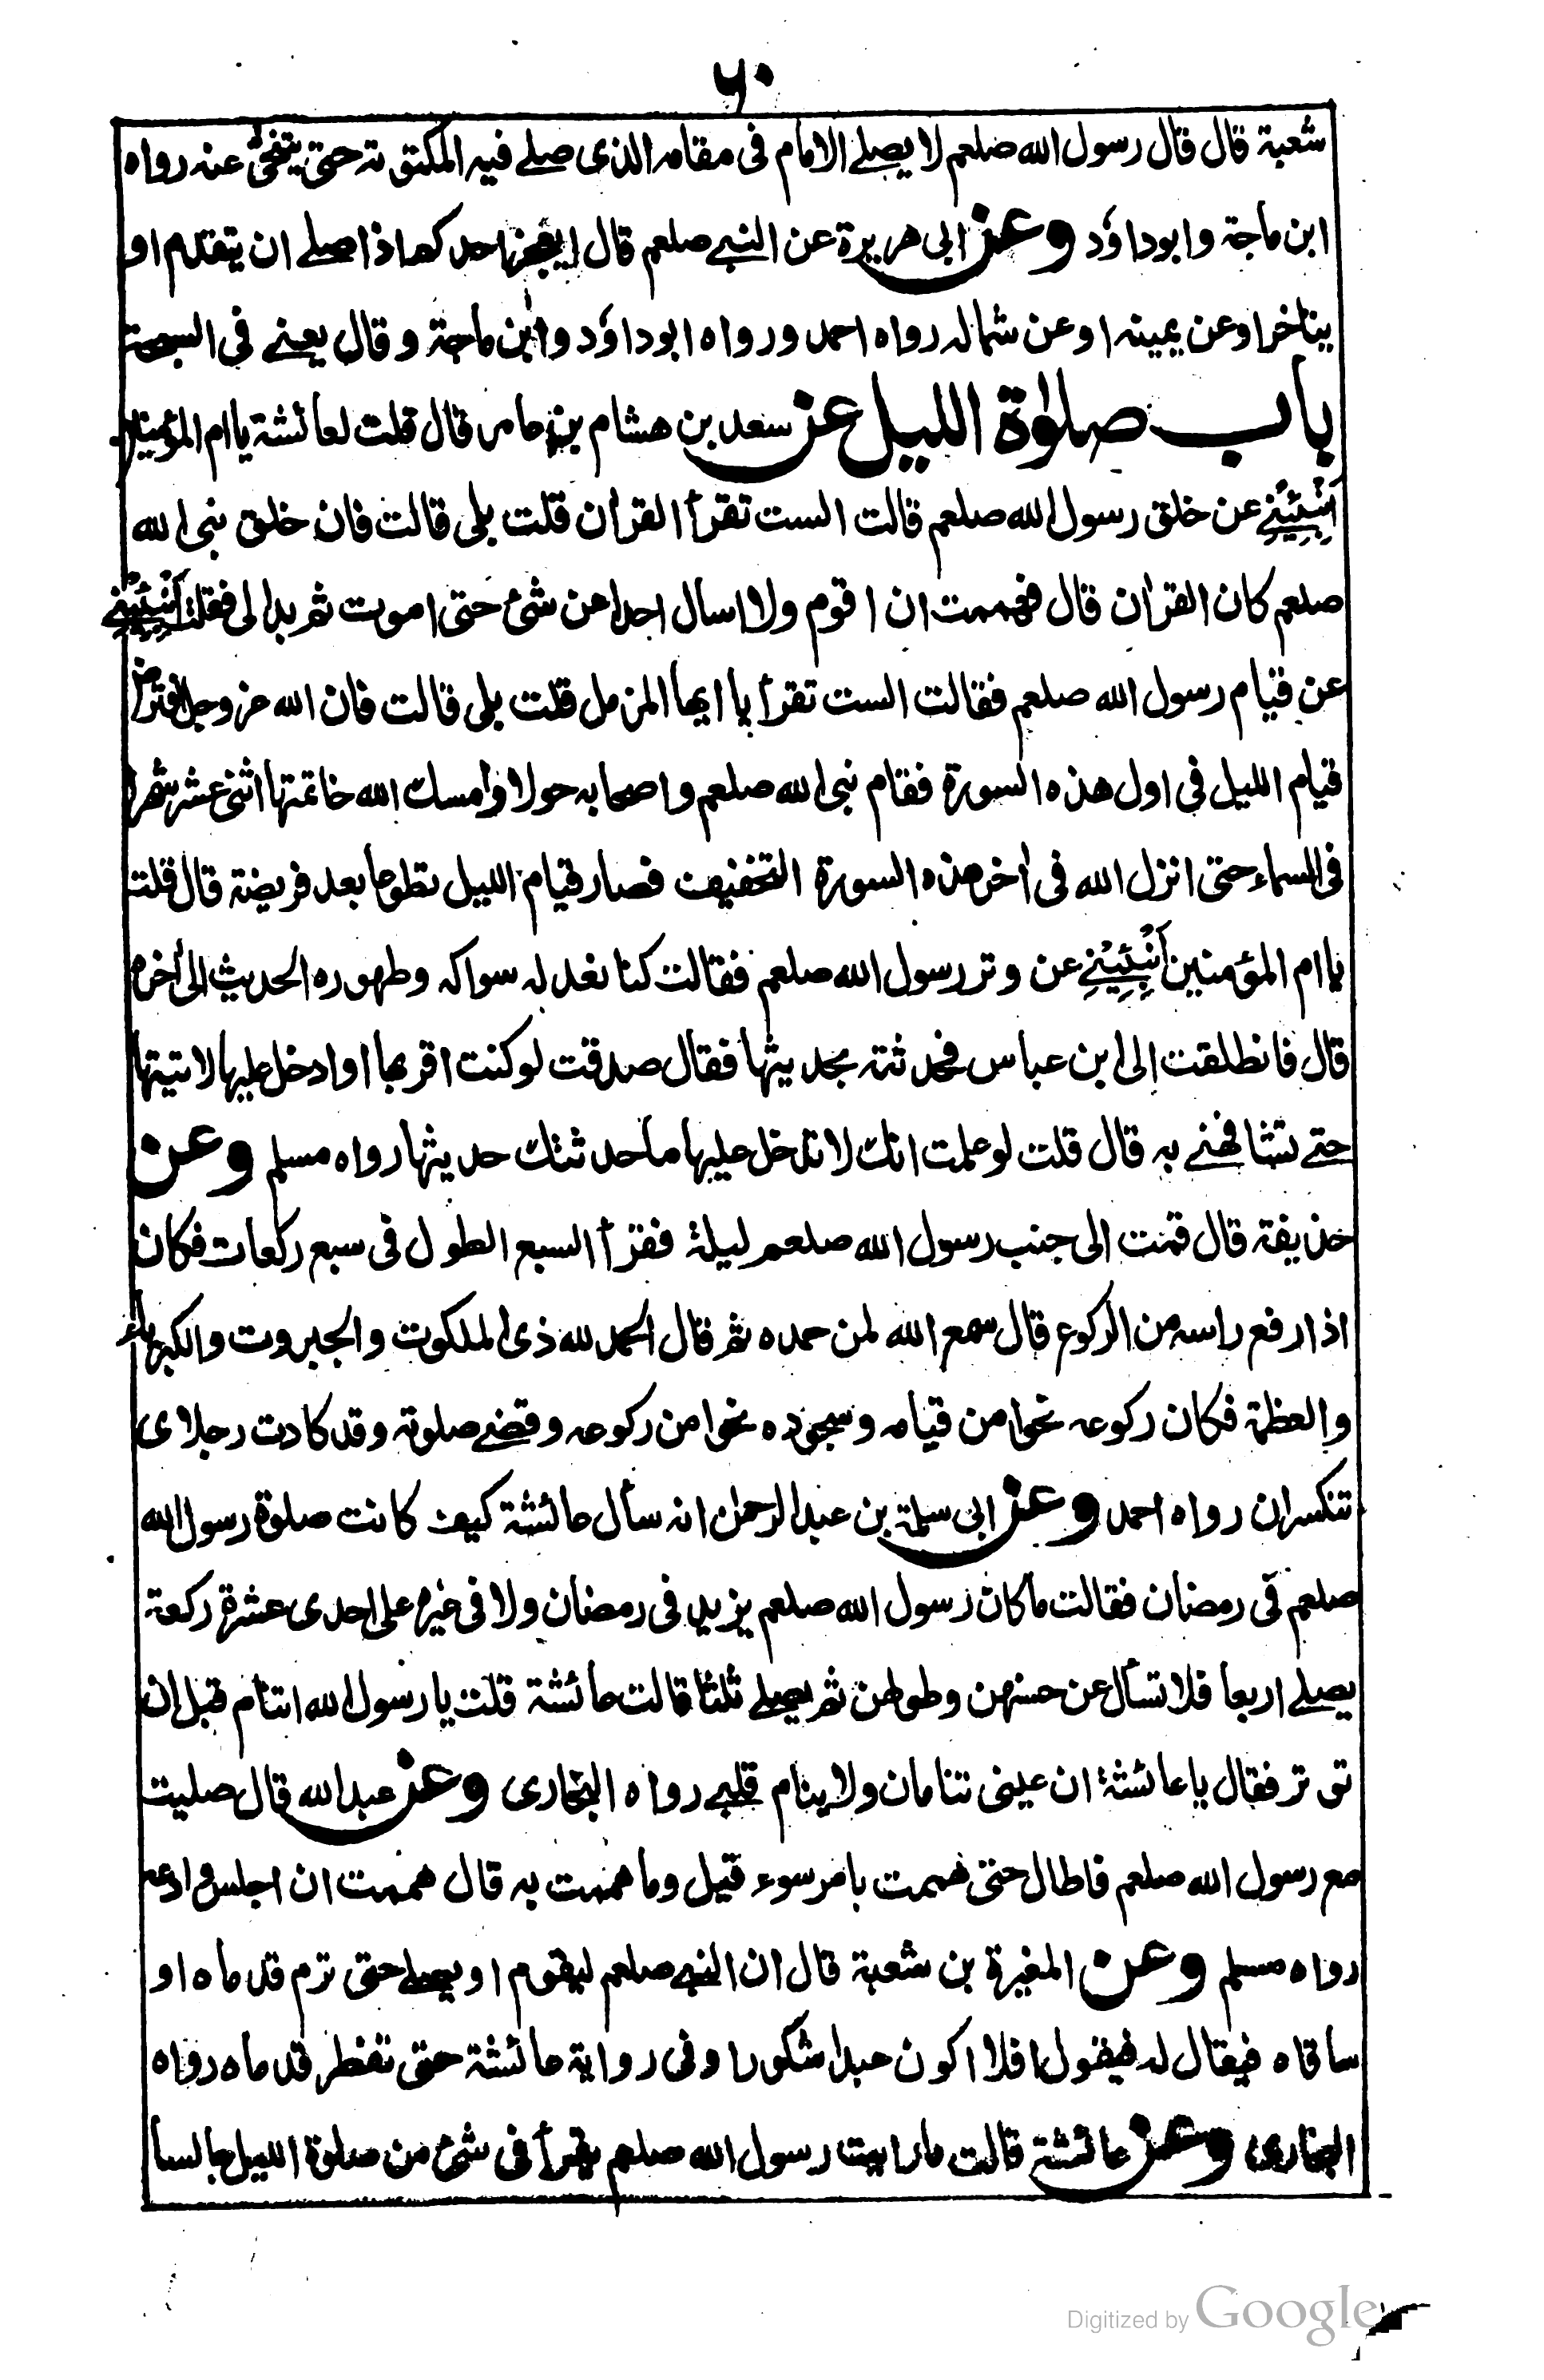 ٦٠
شعبة قال قال رسول الله صلعم لا يصلے الامام فى مقامه الذى صلے فيه المكتوبة حتى يتنحىٰ عنه رواه
ابن ماجة وابوداؤد وعن ابى هريرة عن النبے صلعم قال ايعجز احدكم اذا صلے ان يتقدم او
يتاخر او عن يمينه او عن شماله رواه احمد ورواه ابوداؤد وابن ماجة وقال يعنے فى السبحة
باب صلوٰة الليل عن سعد بن هشام بن عامر قال قلت لعائشة يا ام المؤمنين
اَنْبِئِيْنِے عن خلق رسول الله صلعم قالت الست تقرأ القران قلت بلى قالت فان خلق نبى الله
صلعم كان القران قال فهممت ان اقوم ولا اسال احدا عن شئ حتى اموت ثم بدا لى فقلت اَنْبِئِيْنِے
عن قيام رسول الله صلعم فقالت الست تقرأ يا ايها المزمل قلت بلى قالت فان الله عز وجل افترض
قيام الليل فى اول هذه السورة فقام نبى الله صلعم واصحابه حولا وامسك الله خاتمتها اثنى عشر شهرا
فى السماء حتى انزل الله فى اخر هذه السورة التخفيف فصار قيام الليل تطوعا بعد فريضة قال قلت
يا ام المؤمنين اَنْبِئِيْنِے عن وتر رسول الله صلعم فقالت كنا نعد له سواكه وطهوره الحديث الى أخره
قال فانطلقت الى ابن عباس فحدثته بحديثها فقال صدقت لو كنت اقربها او ادخل عليها لاتيتها
حتے تشافهنے به قال قلت لو علمت انك لا تدخل عليها ما حدثتك حديثها رواه مسلم وعن
حذيفة قال قمت الى جنب رسول الله صلعم ليلة فقرأ السبع الطول فى سبع ركعات فكان
اذا رفع راسه من الركوع قال سمع الله لمن حمده ثم قال الحمد لله ذى الملكوت والجبروت والكبرياء
والعظمة فكان ركوعه نحوا من قيامه وسجوده نحوا من ركوعه وقضے صلوته وقد كادت رجلاى
تنكسران رواه احمد وعن ابى سلمة بن عبد الرحمان انه سأل عائشة كيف كانت صلوة رسول الله
صلعم فى رمضان فقالت ما كان رسول الله صلعم يزيد فى رمضان ولا فى غيره على احدى عشرة ركعة
يصلے اربعا فلا تسأل عن حسنهن وطولهن ثم يصلے ثلثا قالت عائشة قلت يا رسول الله اتنام قبل ان
توتر فقال يا عائشة ان عينى تنامان ولا ينام قلبے رواه البخارى وعن عبد الله قال صليت
مع رسول الله صلعم فاطال حتى هممت بامر سوء قيل وما هممت به قال هممت ان اجلس وادعه
رواه مسلم وعن المغيرة بن شعبة قال ان النبے صلعم ليقوم او يصلے حتى ترم قدماه او
ساقاه فيقال له فيقول افلا اكون عبدا شكورا وفى رواية عائشة حتى تفطر قدماه رواه
البخارى وعن عائشة قالت ما رايت رسول الله صلعم يقرأ فى شئ من صلوة الليل جالسا
Digitized by Google